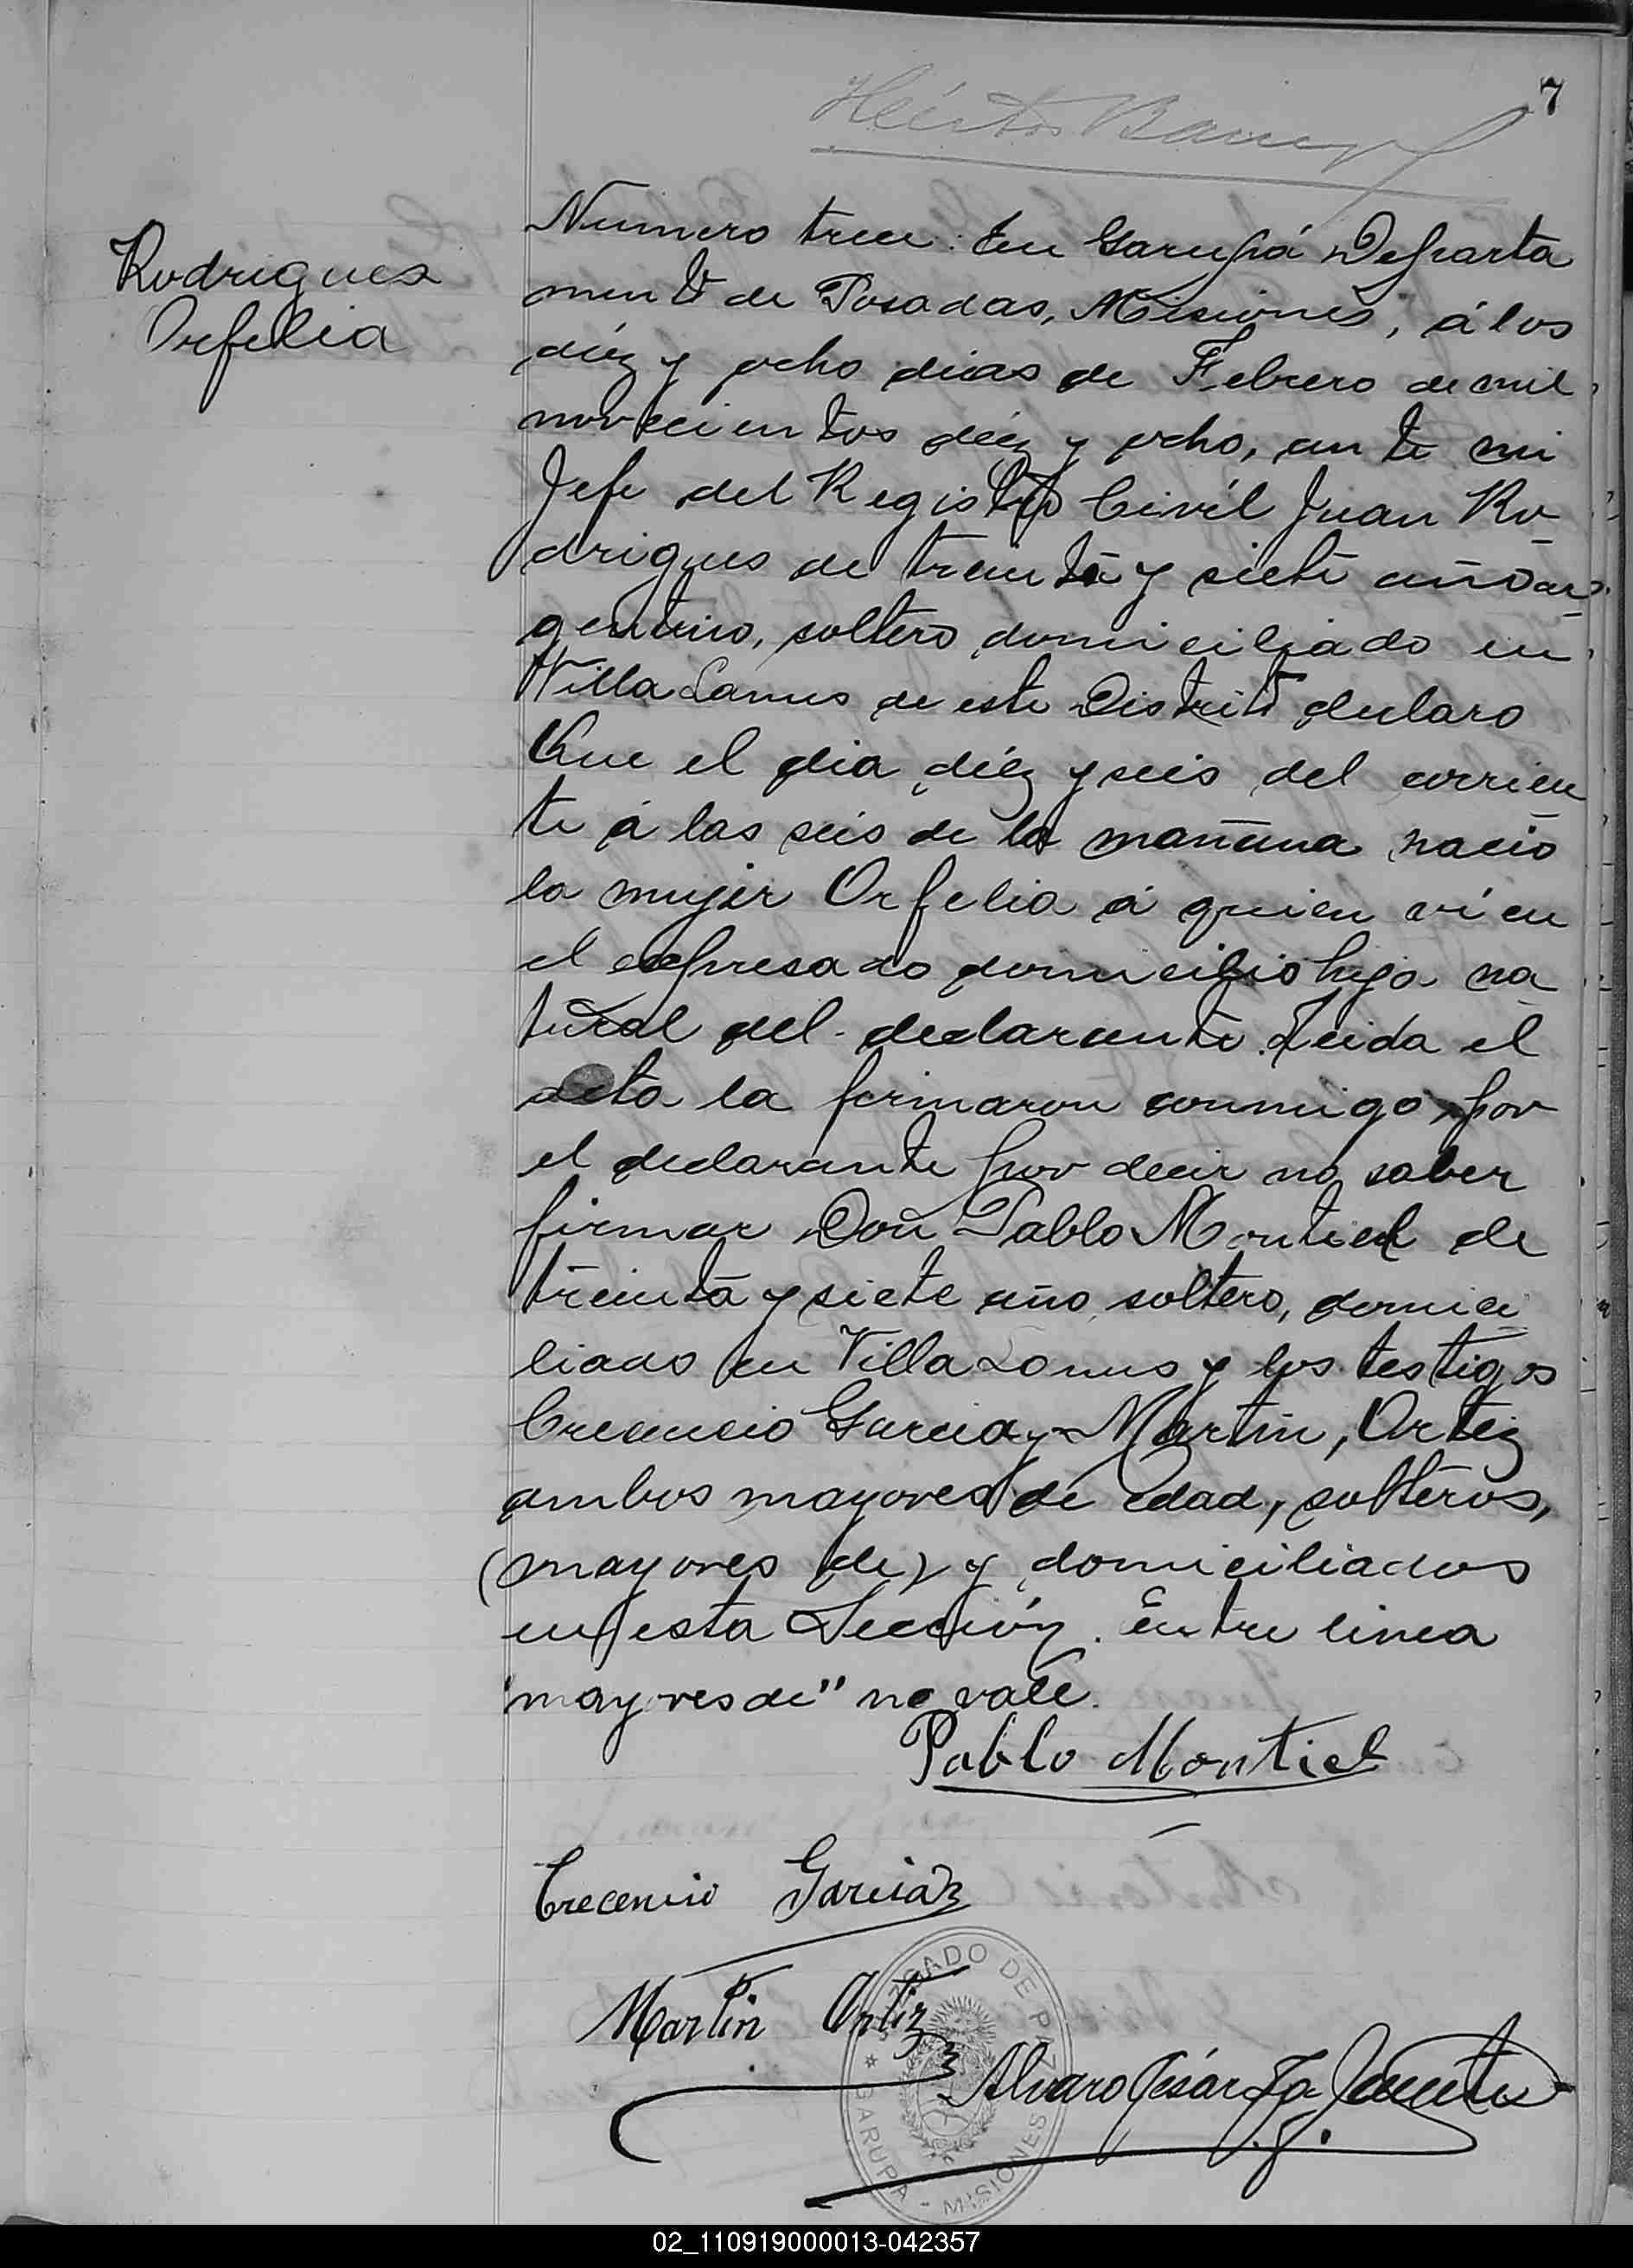 7
Rodrigues
Orfelia
Número trece: En Garupá Departa
mento de Posadas, Misiones, á los
diéz y ocho dias de Febrero de mil
novecientos diéz y ocho, ante mi
Jefe del Registro Civíl Juan Ro-
drigues de treinta y siete año ar-
gentino, soltero domiciliado en
Villa Lanus de este Distrito declaro
Que el dia diéz y seis del corrien-
te á las seis de la mañana nació
la mujer Orfelia á quien ví en
el expresado domicilio hija na-
tural del declarante. Leida el
acta la firmaron conmigo, por
el declarante por decir no saber
firmar Don Pablo Montiel de
treinta y siete año, soltero, domici
liado en Villa Lanus y los testigos
Crecencio Garcia y Martin, Ortiz
ambos mayores de edad, solteros,
(mayores de) y domiciliados
en esta Sección. Entre linea
"mayores de" no vale.
Pablo Montiel
Crecencio Garcia
Martin Ortiz
Alvaro César
JUZGADO DE PAZ
GARUPA - MISIONES
02_110919000013-042357